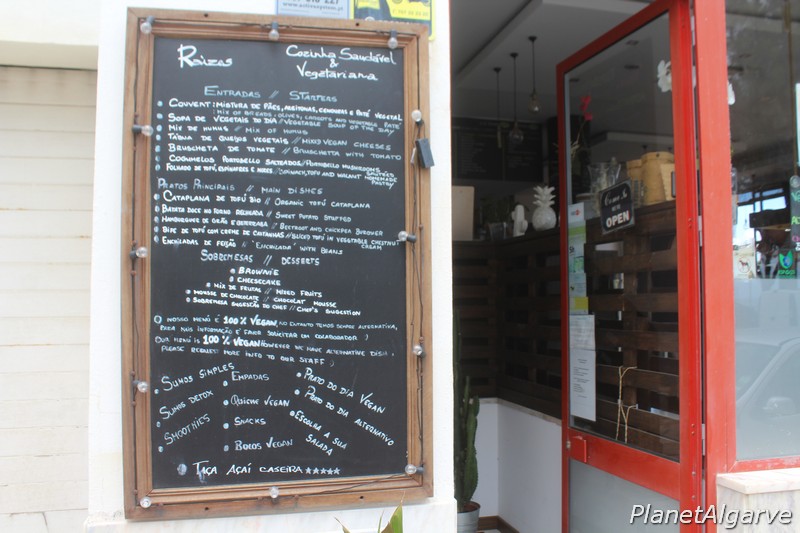 Raizes
Cozinha Saudável
&
Vegetariana
Entradas // Starters
Couvert: Mistura de pães, azeitonas, cenouras e paté vegetal
Mix of breads, olives, carrots and vegetable paté
Sopa de vegetais do dia // Vegetable soup of the day
Mix de humus // Mix of humus
Tábua de queijos vegetais // Mixed vegan cheeses
Bruscheta de tomate // Bruschetta with tomato
Cogumelos Portobello salteados // Portobello mushrooms
sautéed
Folhado de tofu, espinafres e nozes // Spinach, tofu and walnut homemade
pastry
Pratos Principais // Main dishes
Cataplana de tofu bio // Organic tofu cataplana
Batata doce no forno recheada // Sweet potato stuffed
Hambúrgueres de grão e beterraba // Beetroot and chickpea burguer
Bife de tofu com creme de castanhas // Sliced tofu in vegetable chestnut
cream
Enchiladas de feijão // "Enchilada" with beans
Sobremesas // Desserts
Brownie
Cheesecake
Mix de frutas // Mixed fruits
Mousse de chocolate // Chocolat mousse
Sobremesa sugestão do chef // Chef's suggestion
O nosso menu é 100% vegan, no entanto temos sempre alternativa,
para mais informação é favor solicitar em colaborador)
Our menu is 100% vegan however we have alternative dish,
please request more info to our staff)
Sumos simples
Sumos detox
Smoothies
Empadas
Quiche vegan
Snacks
Bolos vegan
Prato do dia vegan
Prato do dia alternativo
Escolha a sua
salada
Taça açaí caseira *****
Come in
we are
OPEN
PlanetAlgarve